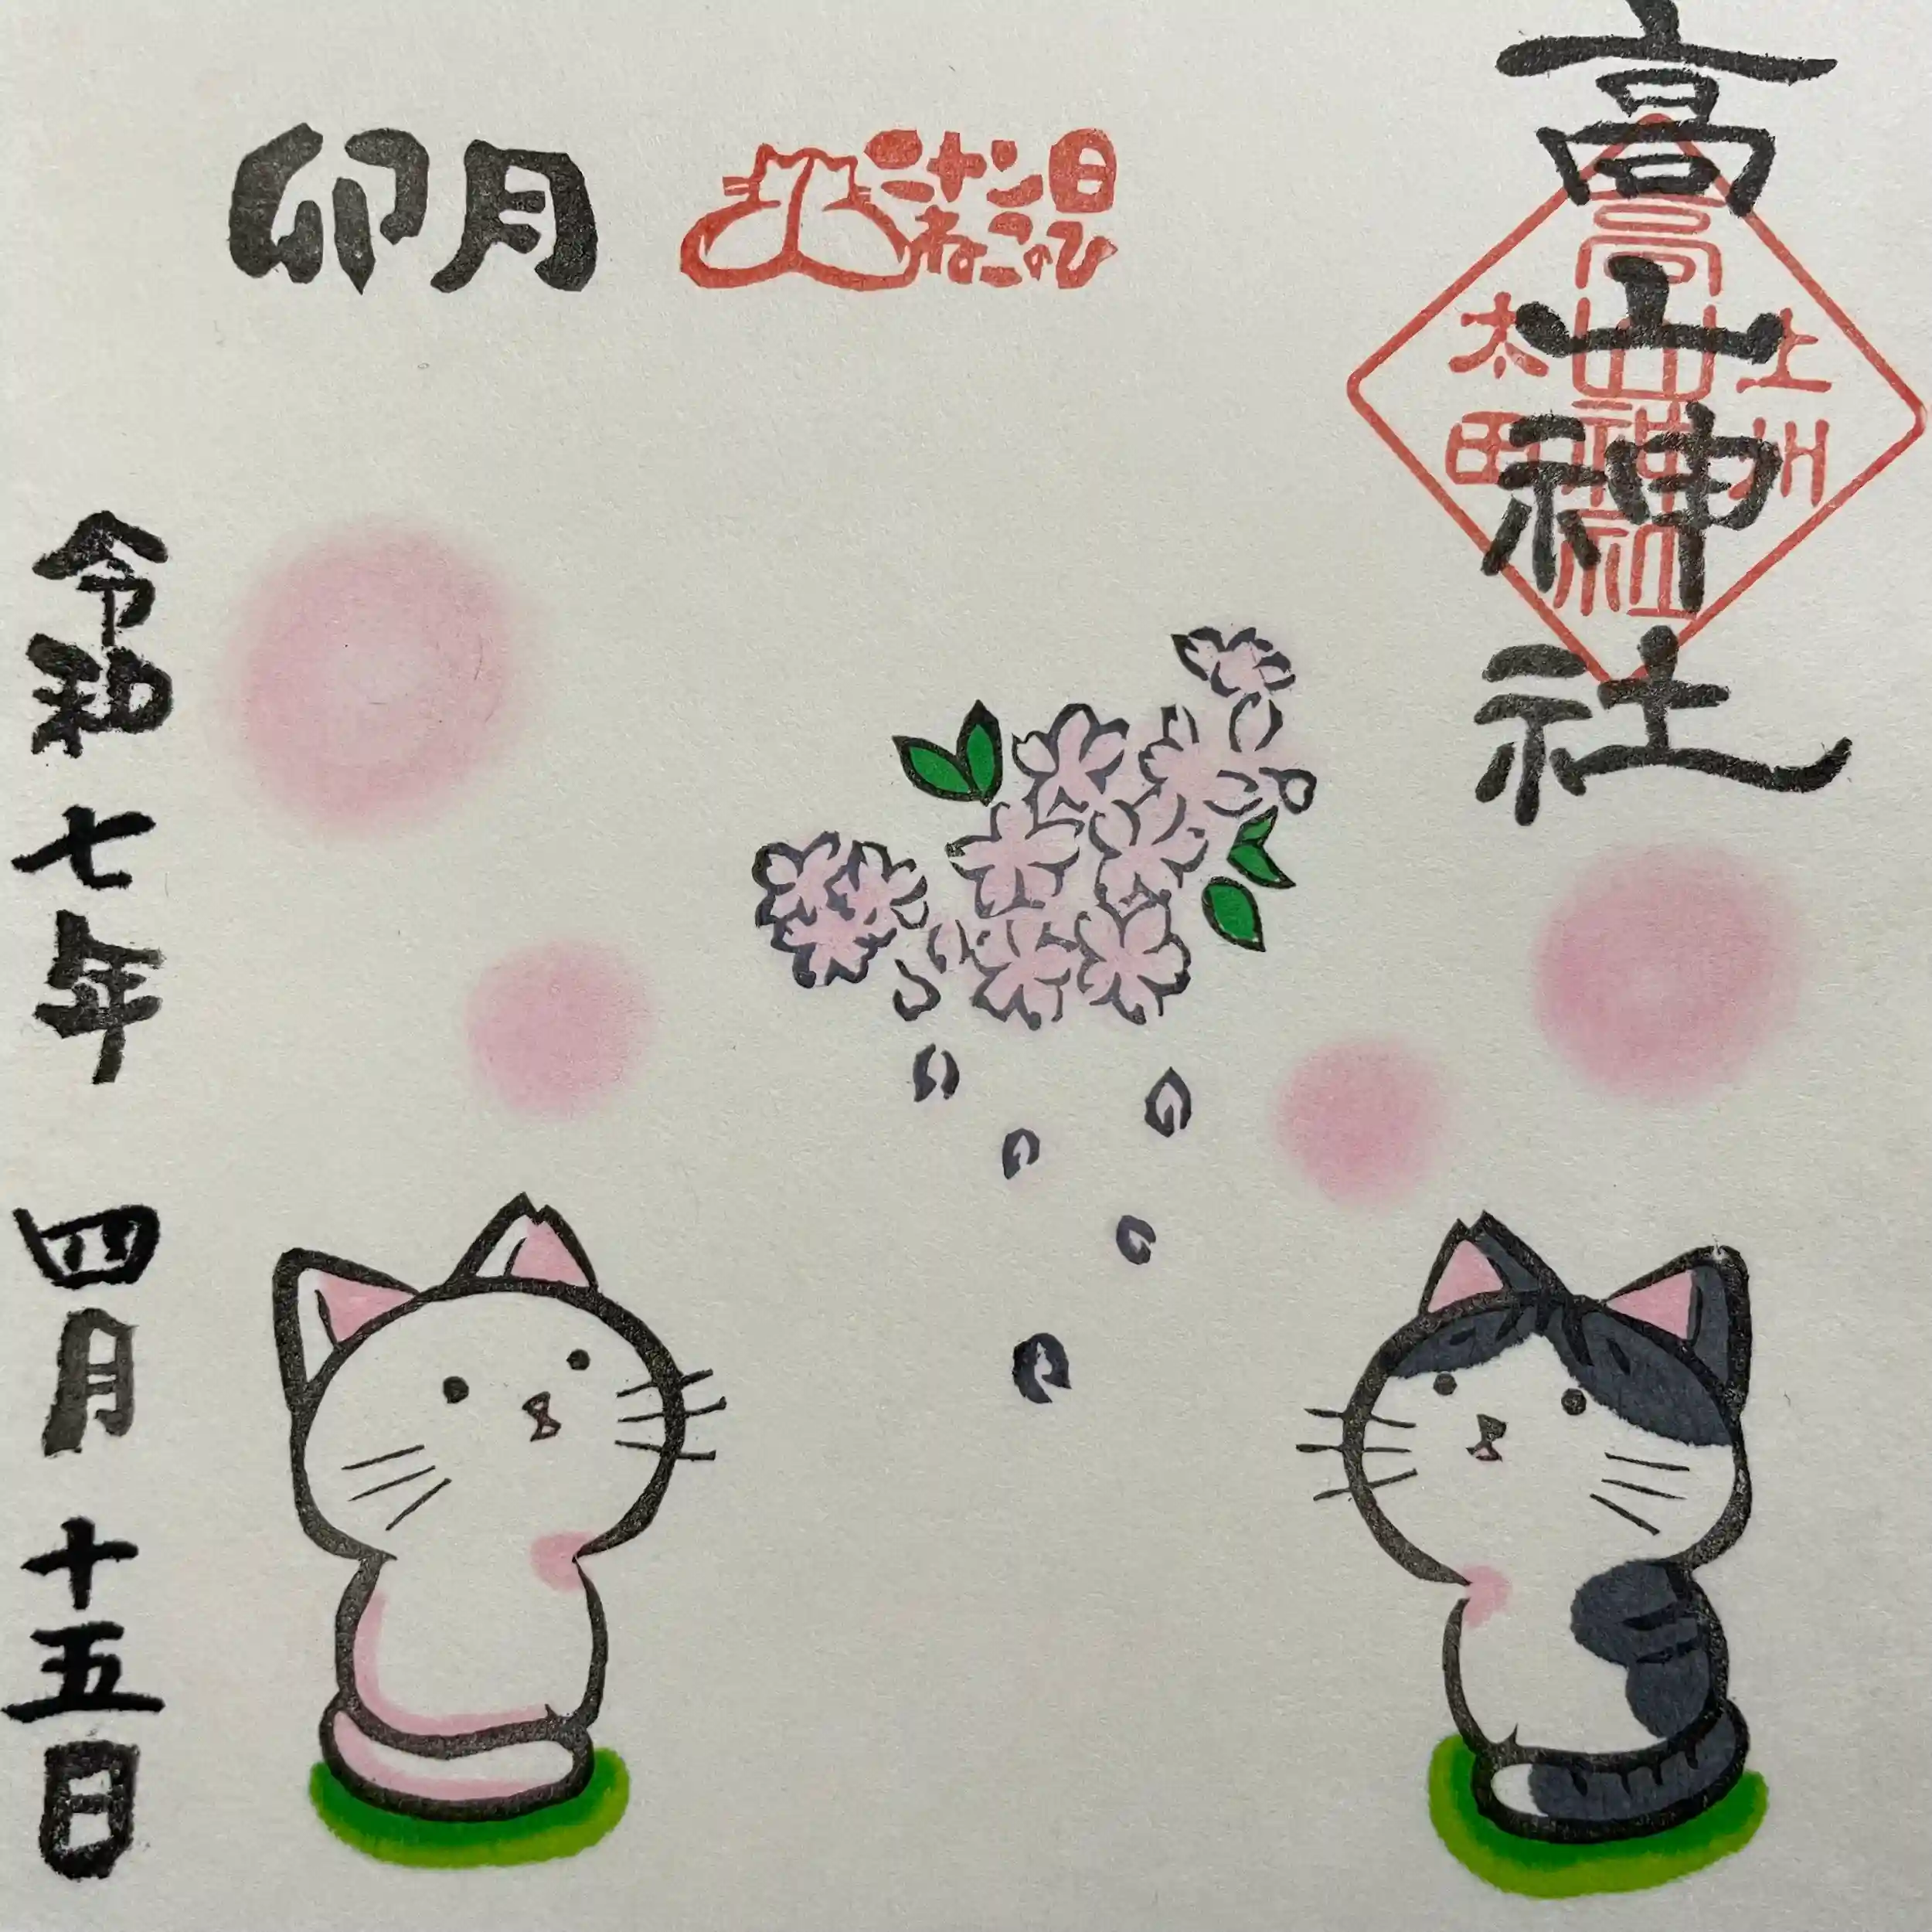 高山神社
上州
高山神社
太田
ニャンニャン日
ねこのひ
卯月
令和七年 四月 十五日